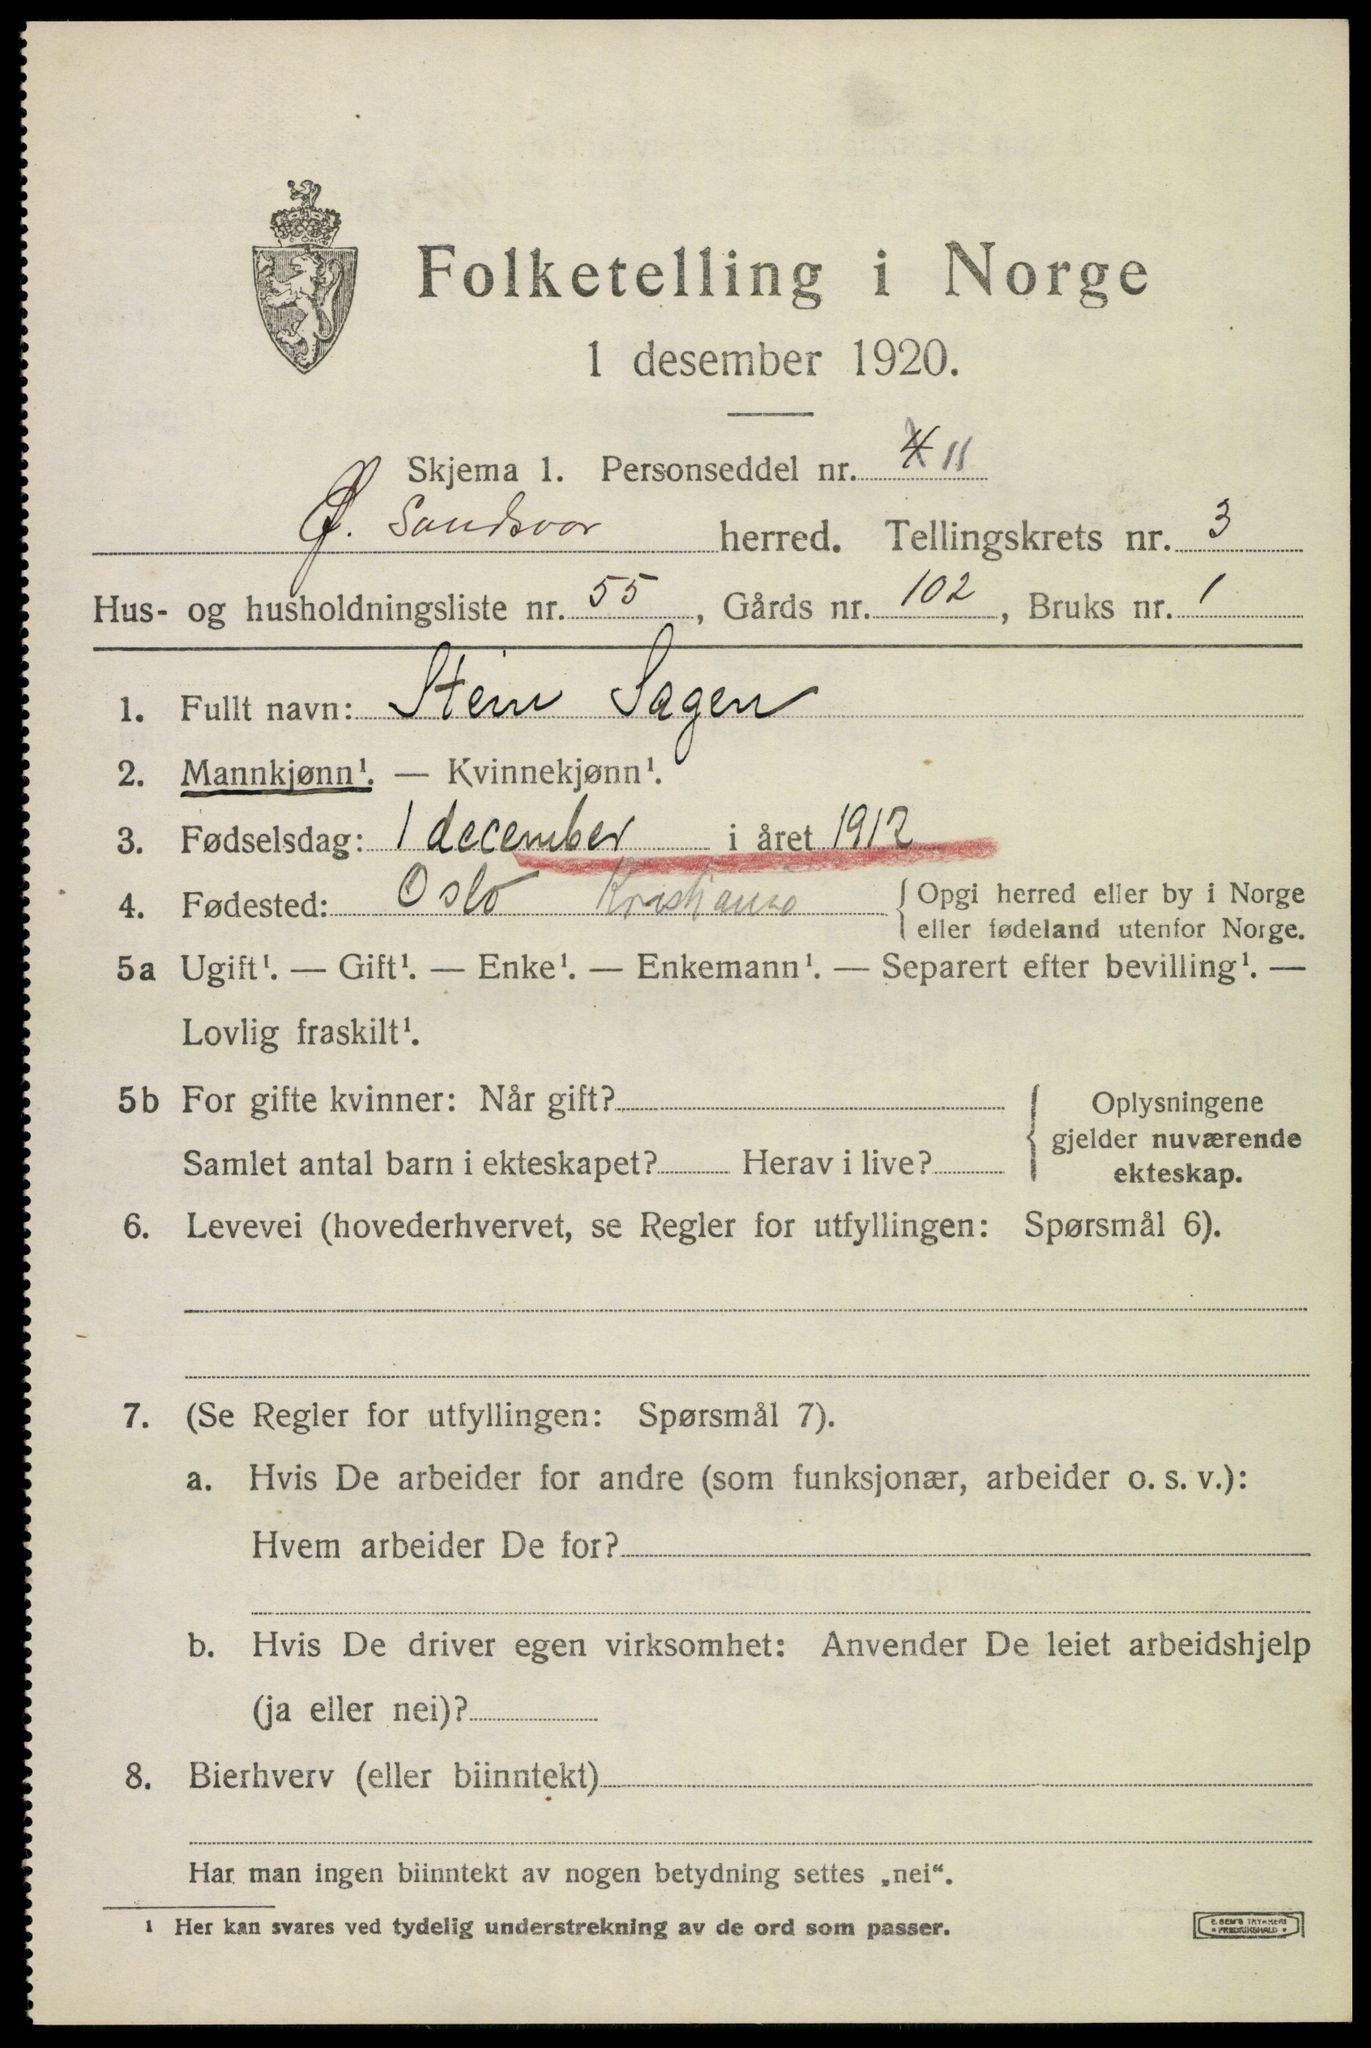 Folketelling i Norge
1 desember 1920.
Skjema 1. Personseddel nr. 4 11
Ø. Sandsvær herred. Tellingskrets nr. 3
Hus- og husholdningsliste nr. 55, Gårds nr. 102, Bruks nr. 1
1. Fullt navn: Stein Sagen
2. Mannkjønn¹. — Kvinnekjønn¹.
3. Fødselsdag: 1 december i året 1912
4. Fødested: Oslo Kristiania { Opgi herred eller by i Norge
eller fødeland utenfor Norge.
5a Ugift¹. — Gift¹. — Enke¹. — Enkemann¹. — Separert efter bevilling¹. —
Lovlig fraskilt¹.
5b For gifte kvinner: Når gift?
Samlet antal barn i ekteskapet? Herav i live?
{ Oplysningene
gjelder nuværende
ekteskap.
6. Levevei (hovederhvervet, se Regler for utfyllingen: Spørsmål 6).
7. (Se Regler for utfyllingen: Spørsmål 7).
a. Hvis De arbeider for andre (som funksjonær, arbeider o. s. v.):
Hvem arbeider De for?
b. Hvis De driver egen virksomhet: Anvender De leiet arbeidshjelp
(ja eller nei)?
8. Bierhverv (eller biinntekt)
Har man ingen biinntekt av nogen betydning settes „nei“.
1 Her kan svares ved tydelig understrekning av de ord som passer.
E. SEM'S TRYKKERI
FREDRIKSHALD